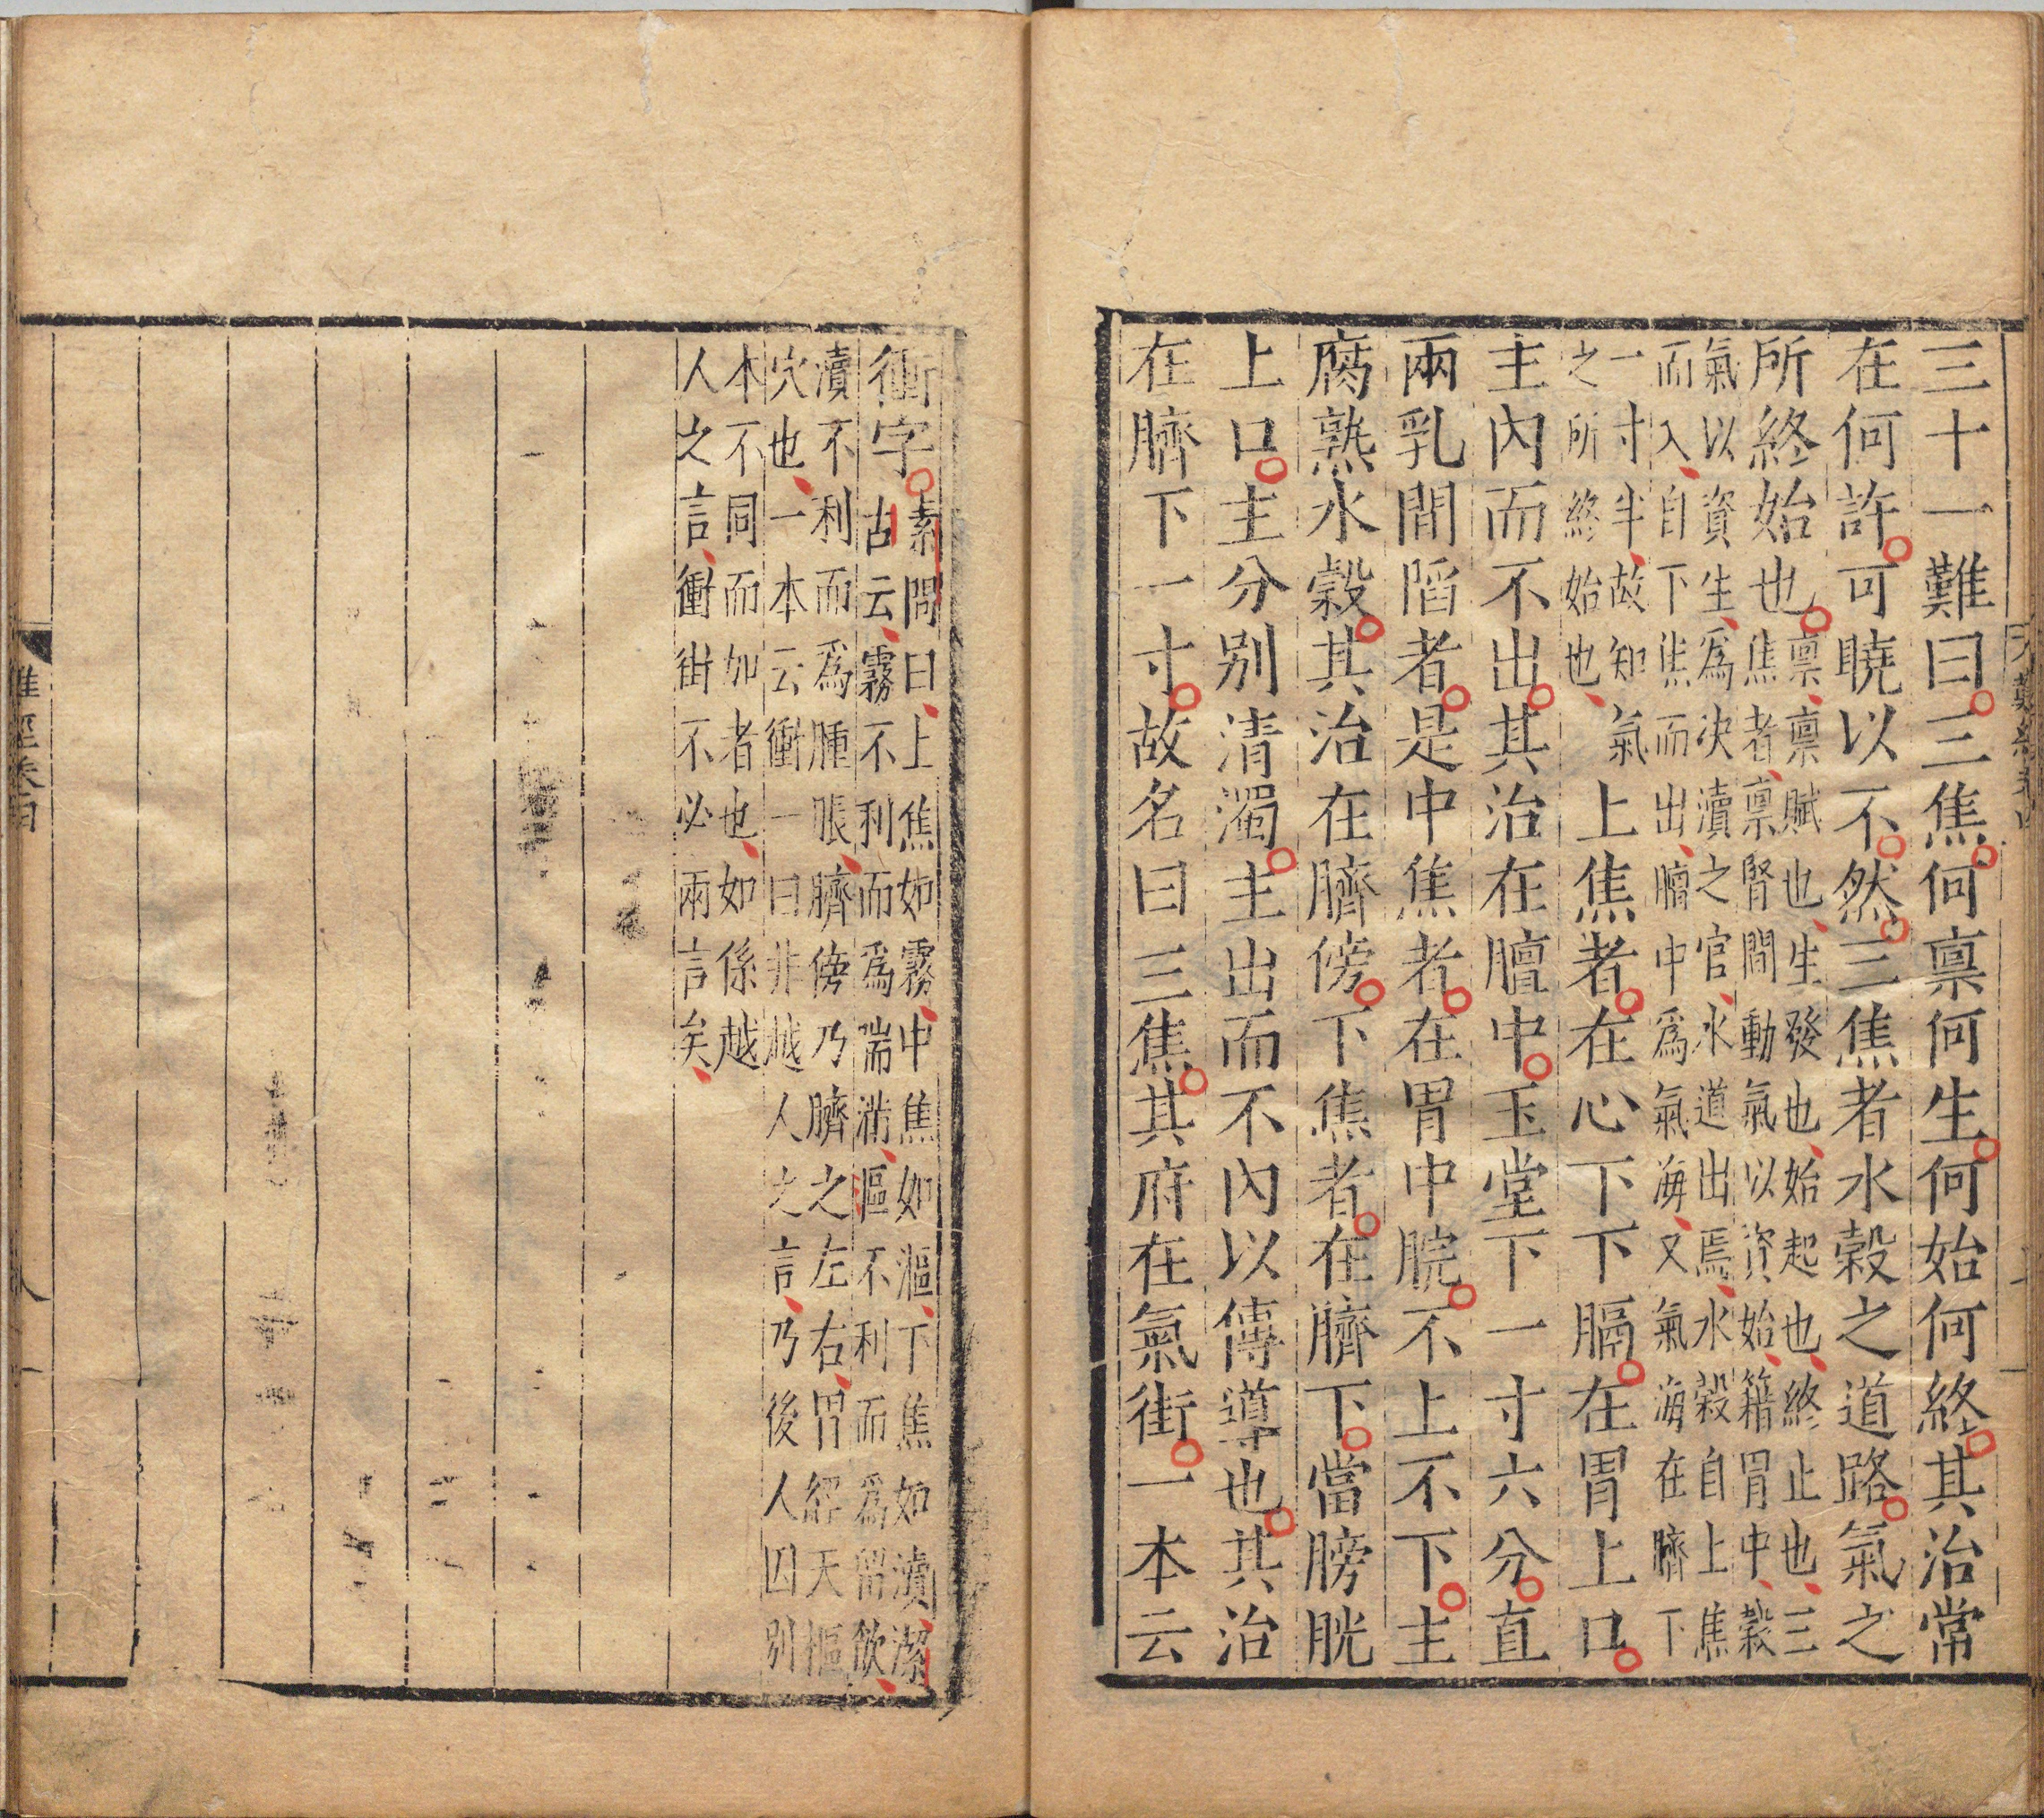 三十一難曰三焦何稟何生何始何終其治常
在何許可曉以不然三焦者水穀之道路氣之
所終始也稟稟賦也生發也始起也終止也三
焦者稟腎間動氣以資始籍胃中穀
氣以資生為決瀆之官水道出焉水穀自上焦
而入自下焦而出膻中為氣海又氣海在臍下
一寸半故知氣
之所終始也上焦者在心下下膈在胃上口
主內而不出其治在膻中玉堂下一寸六分直
兩乳間陷者是中焦者在胃中脘不上不下主
腐熟水穀其治在臍傍下焦者在臍下當膀胱
上口主分別清濁主出而不內以傳導也其治
在臍下一寸故名曰三焦其府在氣街一本云
衝字素問曰上焦如霧中焦如漚下焦如瀆潔
古云霧不利而為喘滿漚不利而為留飲
瀆不利而為腫脹臍傍乃臍之左右胃經天樞
穴也一本云衝一曰非越人之言乃後人因別
本不同而加者也如係越
人之言衝街不必兩言矣